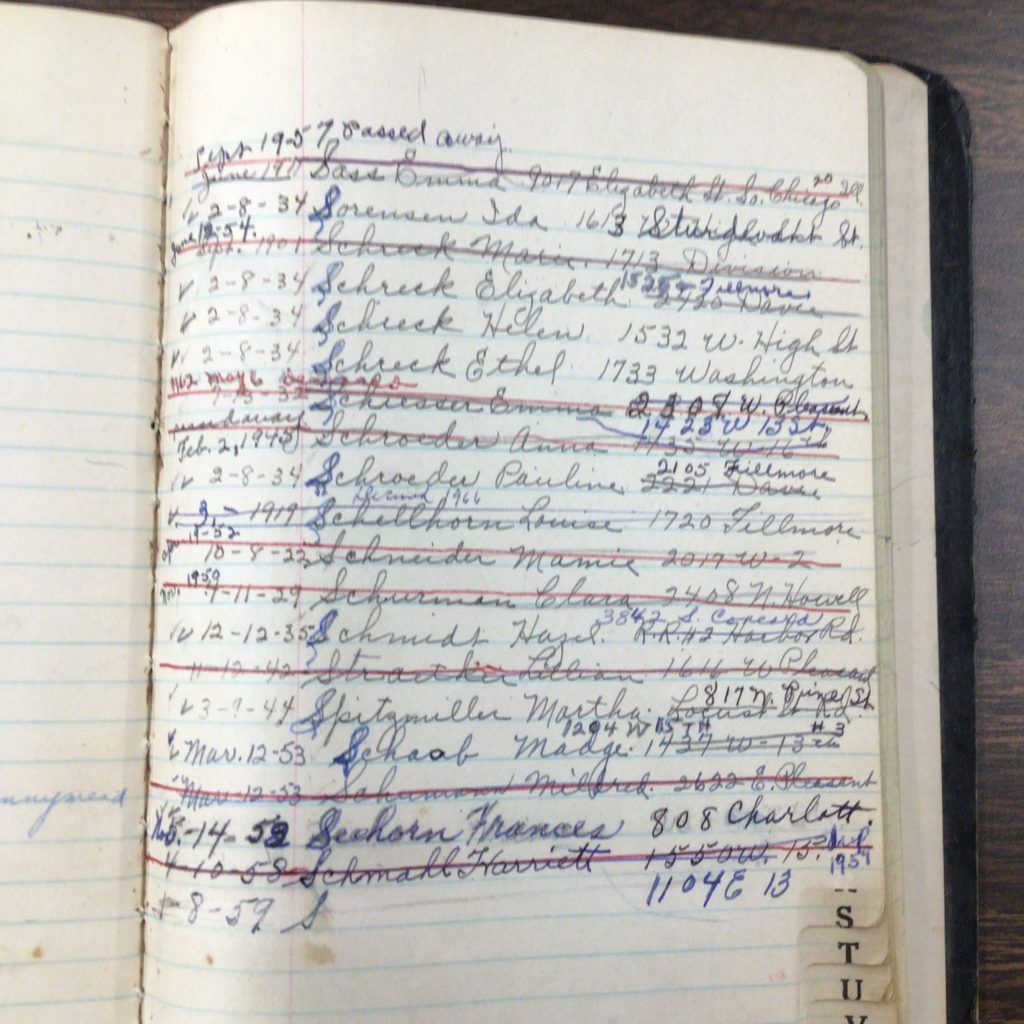 Sept. 1957 Passed away.
June 1911 Sass Emma 9017 Elizabeth St. So. Chicago 20 Ill.
✓ 2-8-34 Sorensen Ida 1613 St.
June 12-54.
Sept. 1901 Schreck Marie. 1713 Division
1525 Fillmore
✓ 2-8-34 Schreck Elizabeth 2430 Davie
✓ 2-8-34 Schreck Helen 1532 W. High St
✓ 2-8-34 Schreck Ethel 1733 Washington
1962 May 6
Schiesser Emma 2308 W. Pleasant
1423 W 13 St.
Feb. 2, 1945 Schroeder Anna 1135 W-16th
2105 Fillmore
✓ 2-8-34 Schroeder Pauline 2221 Davie
1966
✓ 3, - 1919 Schellhorn Louise 1720 Fillmore
10-8-22 Schneider Mamie 2017 W-2
Nov. 1959
9-11-29 Schurman Clara 2408 N. Howell
3842 S. Concord
✓ 12-12-35 Schmidt Hazel. R.R. #2 Harbor Rd.
11-12-42 Lillian 1611 W Pleasant
817 N. Pine St
✓ 3-9-44 Spitzmiller Martha. Locust St Rd.
1294 W 15TH #3
✓ Mar. 12-53 Schaab Madge. 1437 W-13th
Mar 12-53 Schumann Mildred. 2622 E. Pleasant
5-14-52 Seehorn Frances 808 Charlott.
4-10-58 Schmahl Harriett 1550 W. 15.
1959
1104 E 13
8-59 S
S
T
U
V